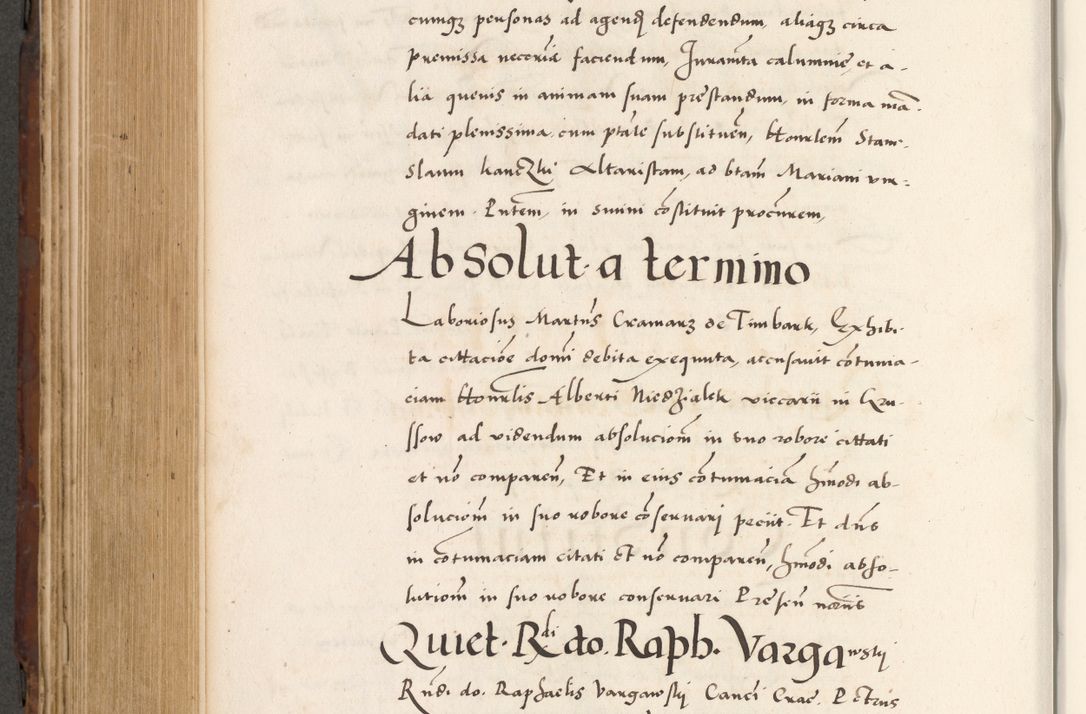 cumqȝ personas ad agendȝ defendendum, aliaqȝ circa
premissa necoriā faciendum, Juramta calumnie, et a-
lia quevis in animam suam prestandum, in forma man-
dati plenissima, cum ptate substituen, Honrlem Stani-
slaum Altaristam, ad btam Mariam vir-
ginem. Pntem, in suum constituit procurem,
Absolut. a termino
Laboriosus Martins Cramarz de Timbark, Exhibi-
ta cittacioe domi debita exequuta, accusavit cotuma-
ciam Honrlis Alberti Niedzialek viccarii in Gru-
ssow ad videndum absolucioni in suo robore cittati
et nō comparen, Et in eius cotumaciā hmodi ab-
solucioni in suo robore conservari peciit. Et dns
in cotumaciam citati et nō comparen, hmodi abso-
lutioni in suo robore conservari Presen
Quiet. Rdi do. Raph. Vargawskj
Rndi do. Raphaelis Vargawskj Canci Crac. Petrus